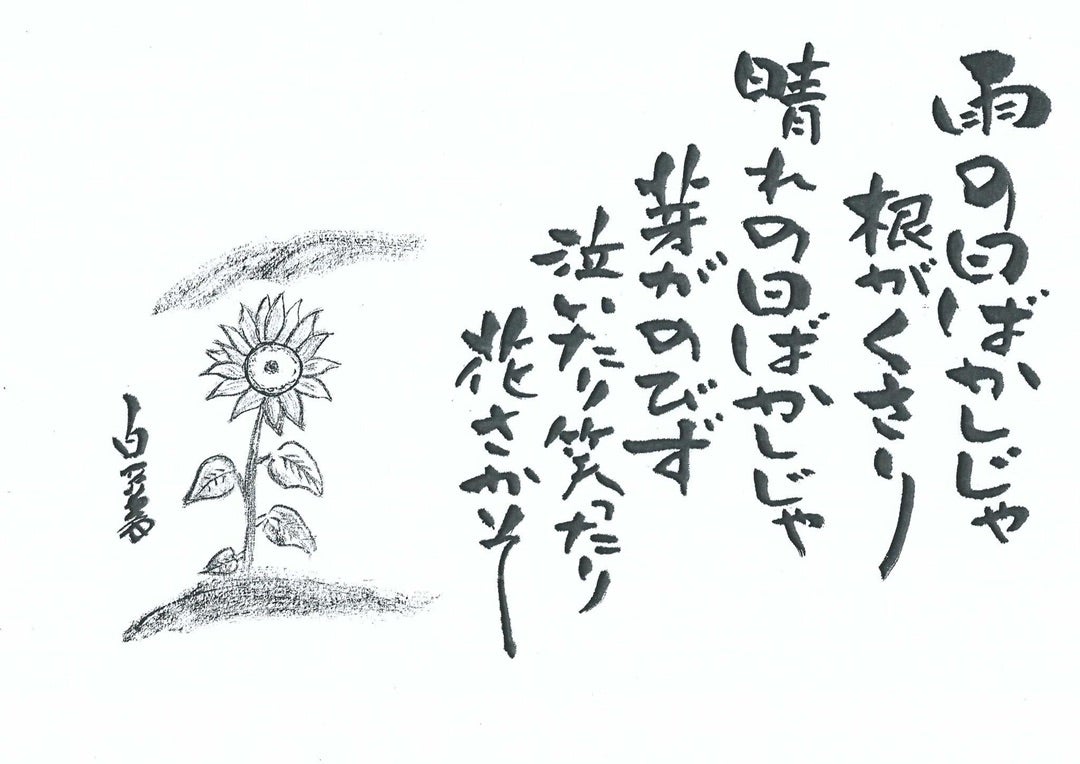 雨の日ばかしじゃ
根がくさり
晴れの日ばかしじゃ
芽がのびず
泣いたり笑ったり
花さかそ